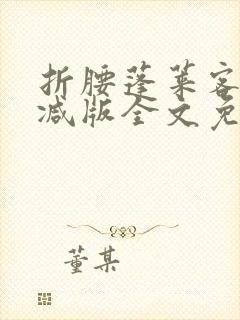 折腰蓬莱客
减版全文免
董某